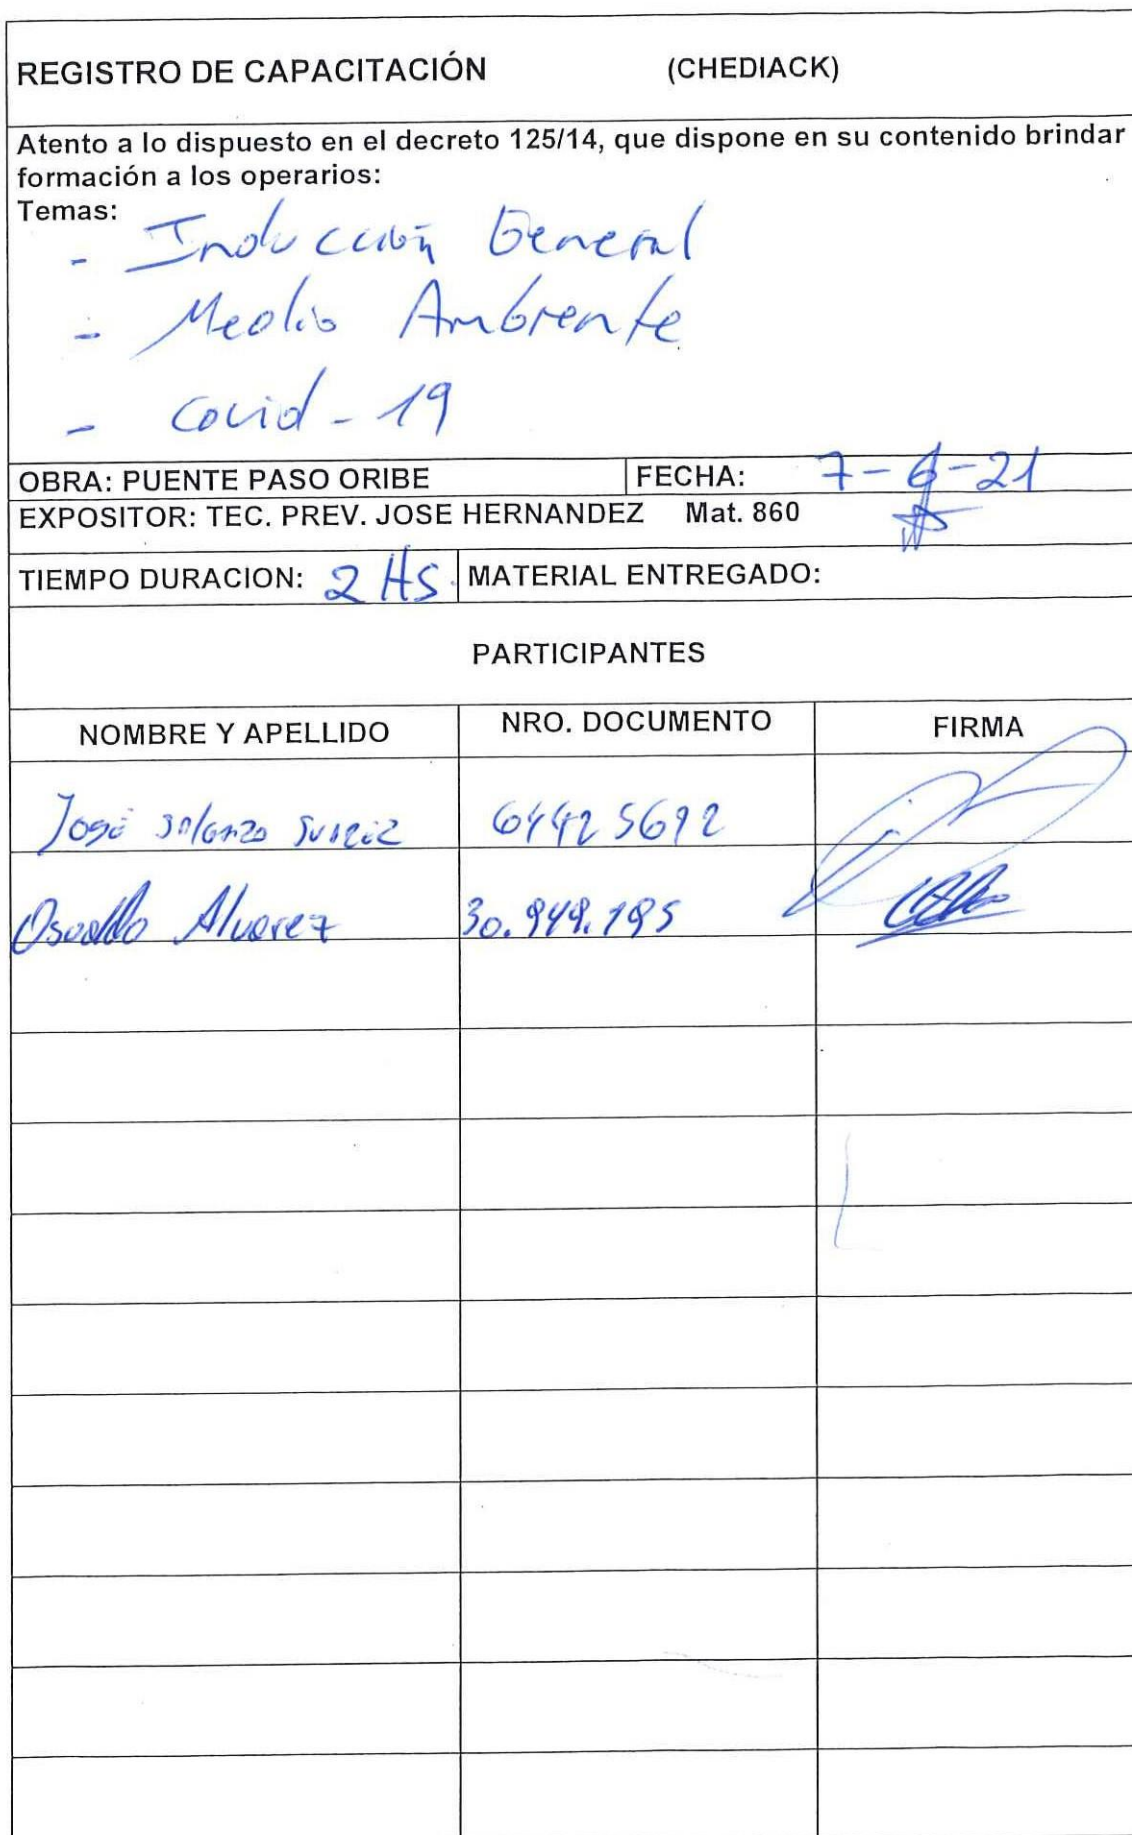 REGISTRO DE CAPACITACIÓN (CHEDIACK)
Atento a lo dispuesto en el decreto 125/14, que dispone en su contenido brindar
formación a los operarios:
Temas:
- Inducción General
- Medio Ambiente
- Covid-19
OBRA: PUENTE PASO ORIBE FECHA: 7-6-21
EXPOSITOR: TEC. PREV. JOSE HERNANDEZ Mat. 860
TIEMPO DURACION: 2 Hs. MATERIAL ENTREGADO:
PARTICIPANTES
NOMBRE Y APELLIDO NRO. DOCUMENTO FIRMA
José
Osvaldo Alvarez